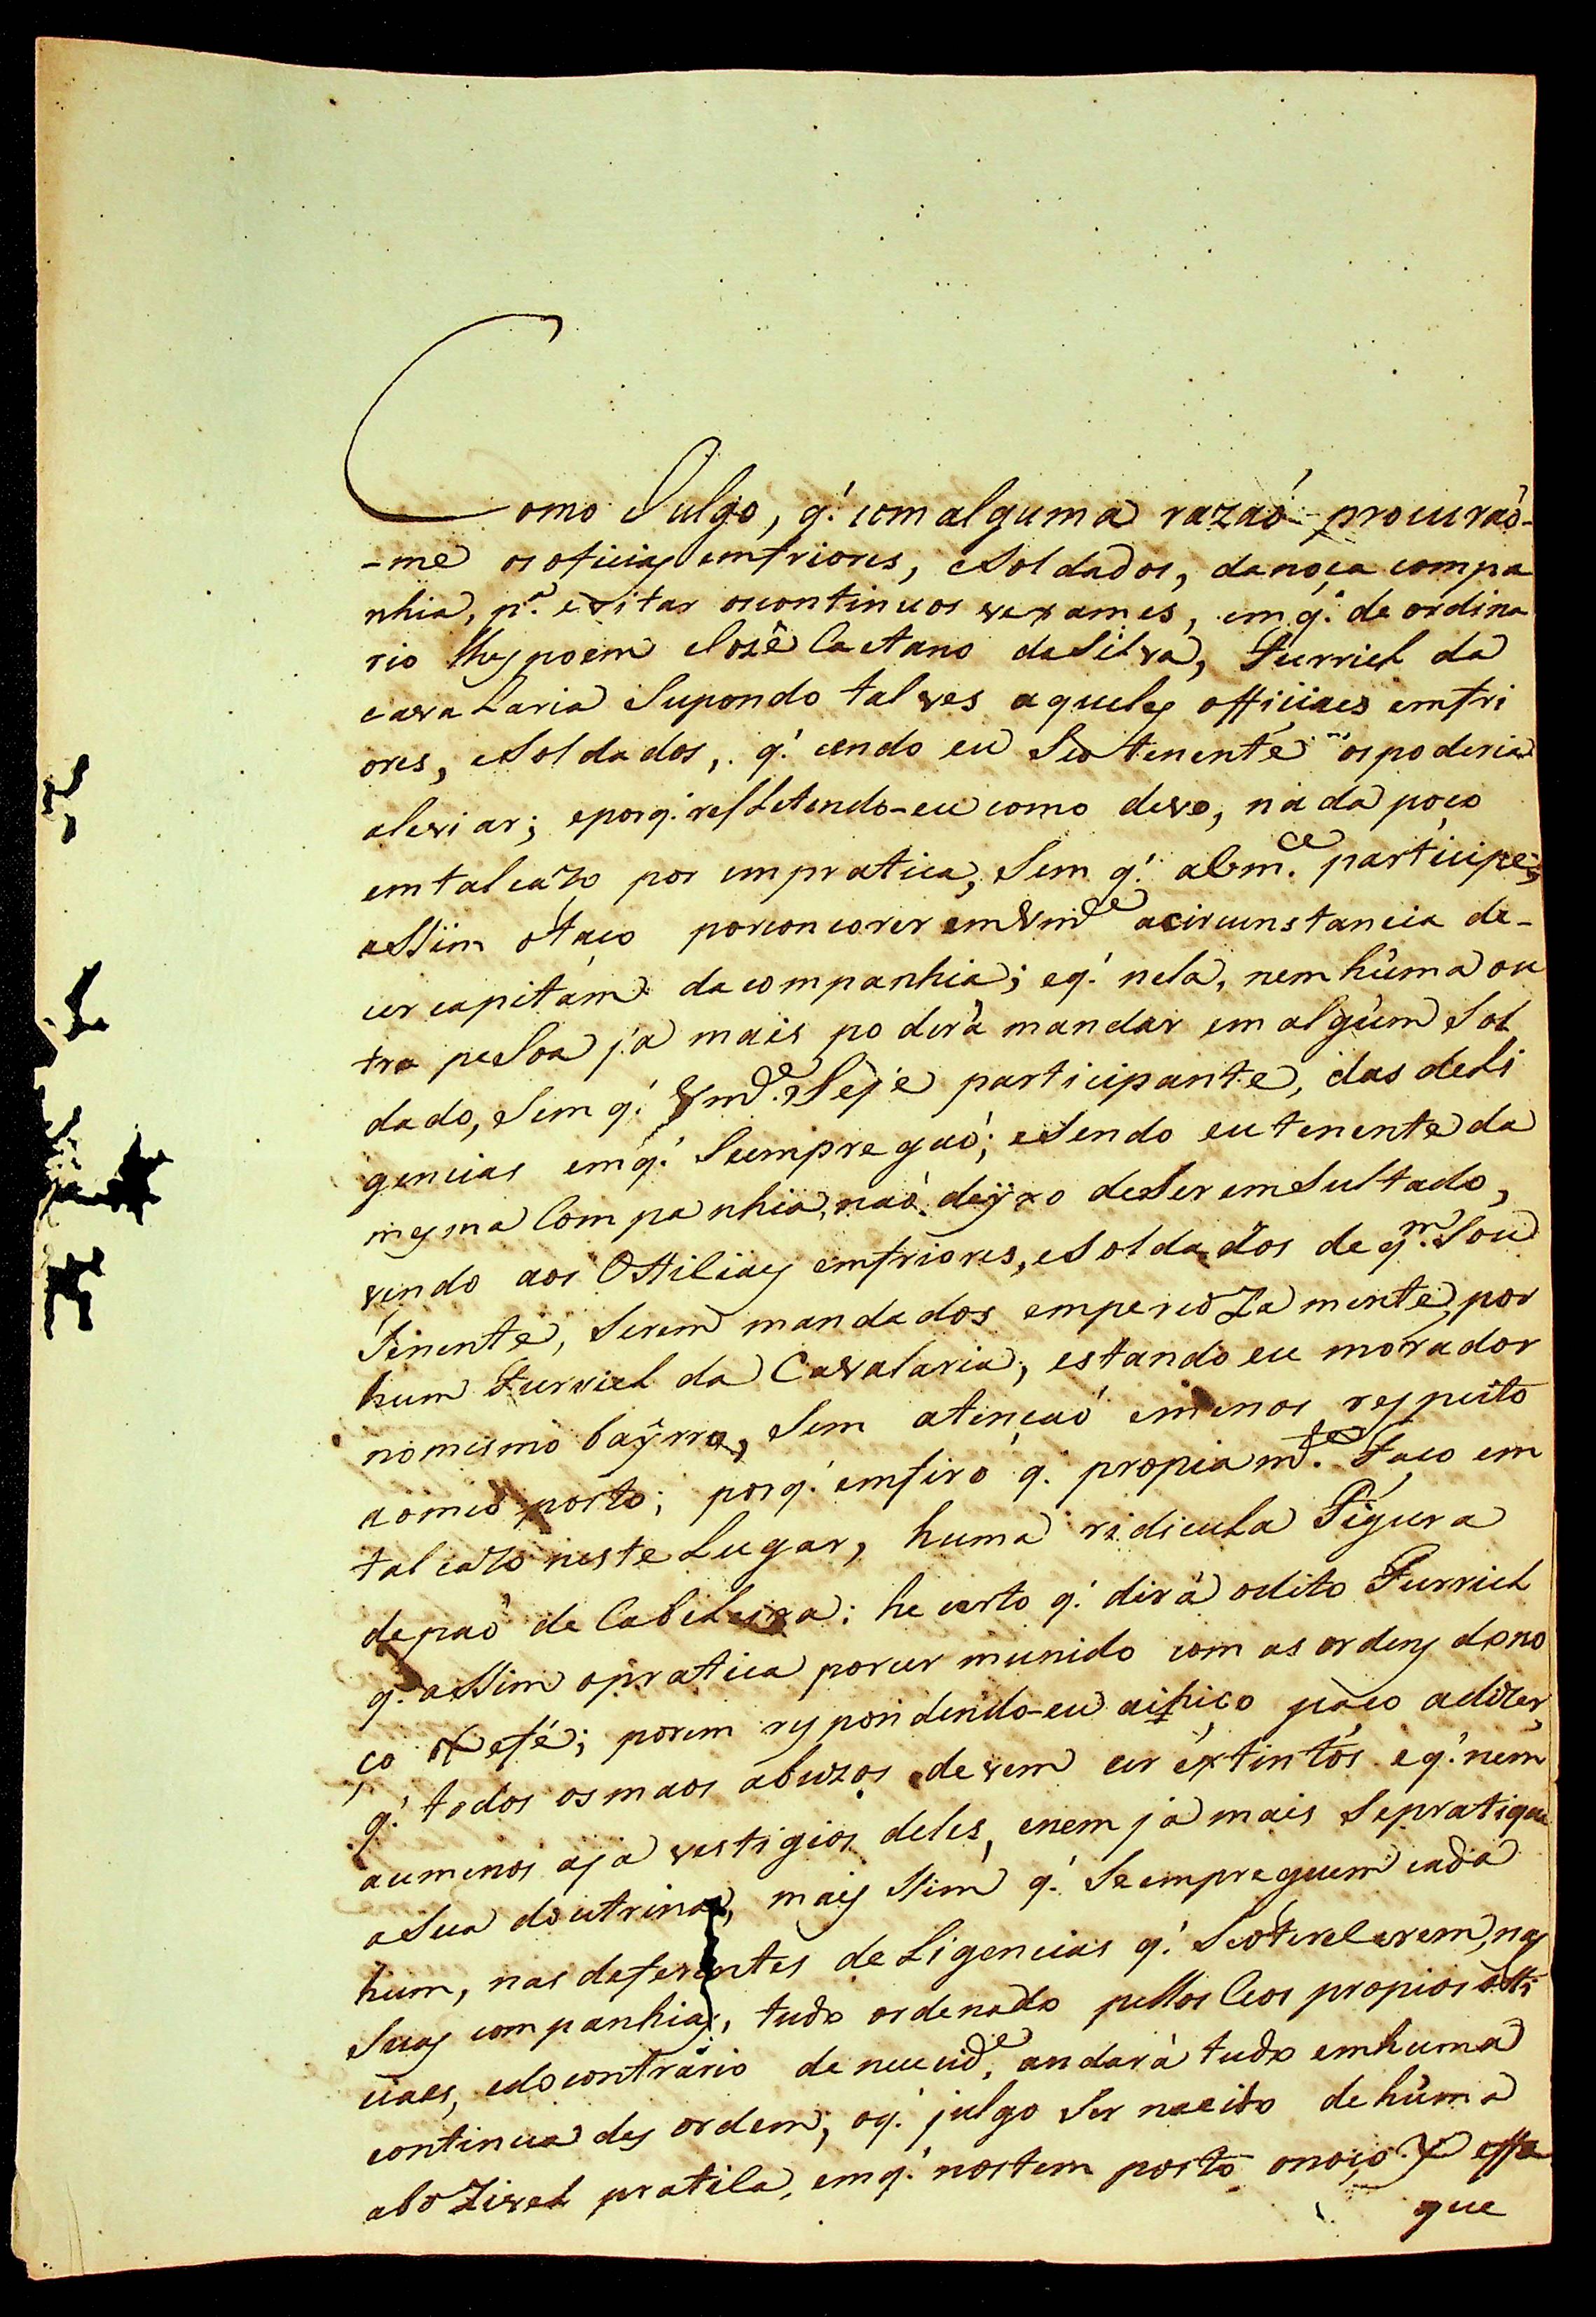 Como Julgo, q. com alguma razaó procuraó-
-me os oficiaes emfriores, eSoldados, danoça compa
nhia, p.ª evitar oscontinuos vexames, em q. de ordina
rio lhes poem Jozê Caetano daSilva, Furriel da
cavalaria Supondo talves aqueles officiaes emfri
ores, eSoldados, q. cendo eu Seo tenente os poderia
aleviar; eporq. refletendo-eu como devo, nada poço
emtalcazo por empratica, Sem q. aVm.ce participe;
aSsim ofaço porconcorer emVm.ce acircunstancia de-
cer capitám dacompanhia; eq. nela, nem hûma ou
tra peSoa já mais poderà mandar em algùm Sol
dado, Sem q. Vm.ce Seje participante, das deli
gencias emq. Seempregaó; eSendo eu tenente da
mesma Companhia, naó deyxo deSer emSultado,
vendo aos Officiaes emfriores, eSoldados de q.m Sou
Tenente, Serem mandados emperiozamente, por
hum Furriel da Cavalaria; estando eu morador
nomesmo bayrro, Sem atençaó emenos respeito
aomeo posto; porq. emfiro q. propiam.te Faço em
tal cazo neste Lugar, huma ridicula Figura
depaó de Cabeleira: he certo q. dirà odito Furriel
q. aSsim opratica porcer munido com as ordens dono
ço Xefé; porem respondendo-eu aiSiço paço adizer,
q. todos osmaos abuzos devem cer extintos eq. nem
aumenos aja vestigios deles, enem já mais Sepratique
aSua doutrina, mais Sim q. Seempreguem cada
hum, nas deferentes deLigencias q. Seoferecerem, nas
Suas companhias, tudo ordenado pellos Ceos propios offi
ciaes, edocontrário de necicid.e, andarà tudo emhuma
continua desordem, oq. julgo Ser nacido dehûma
aboZivel pratica, emq. nostem posto onoço Xefe
que